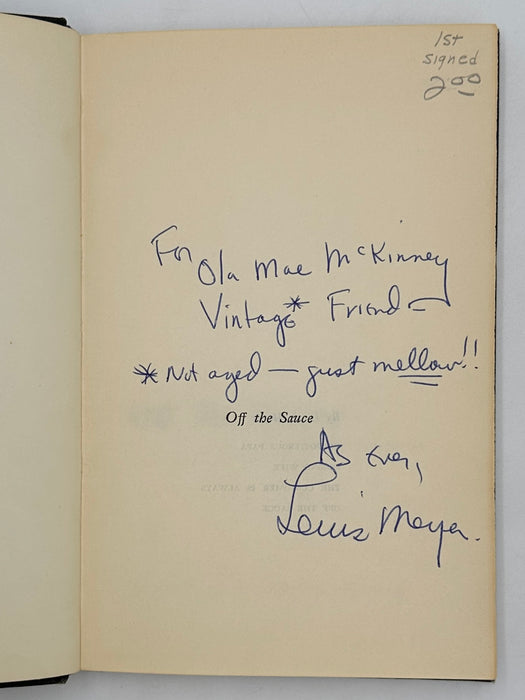 1st
signed
2.00
For Ola Mae McKinney
Vintage* Friend —
* Not aged — just mellow!!
Off the Sauce
As Ever,
Lewis Meyer.